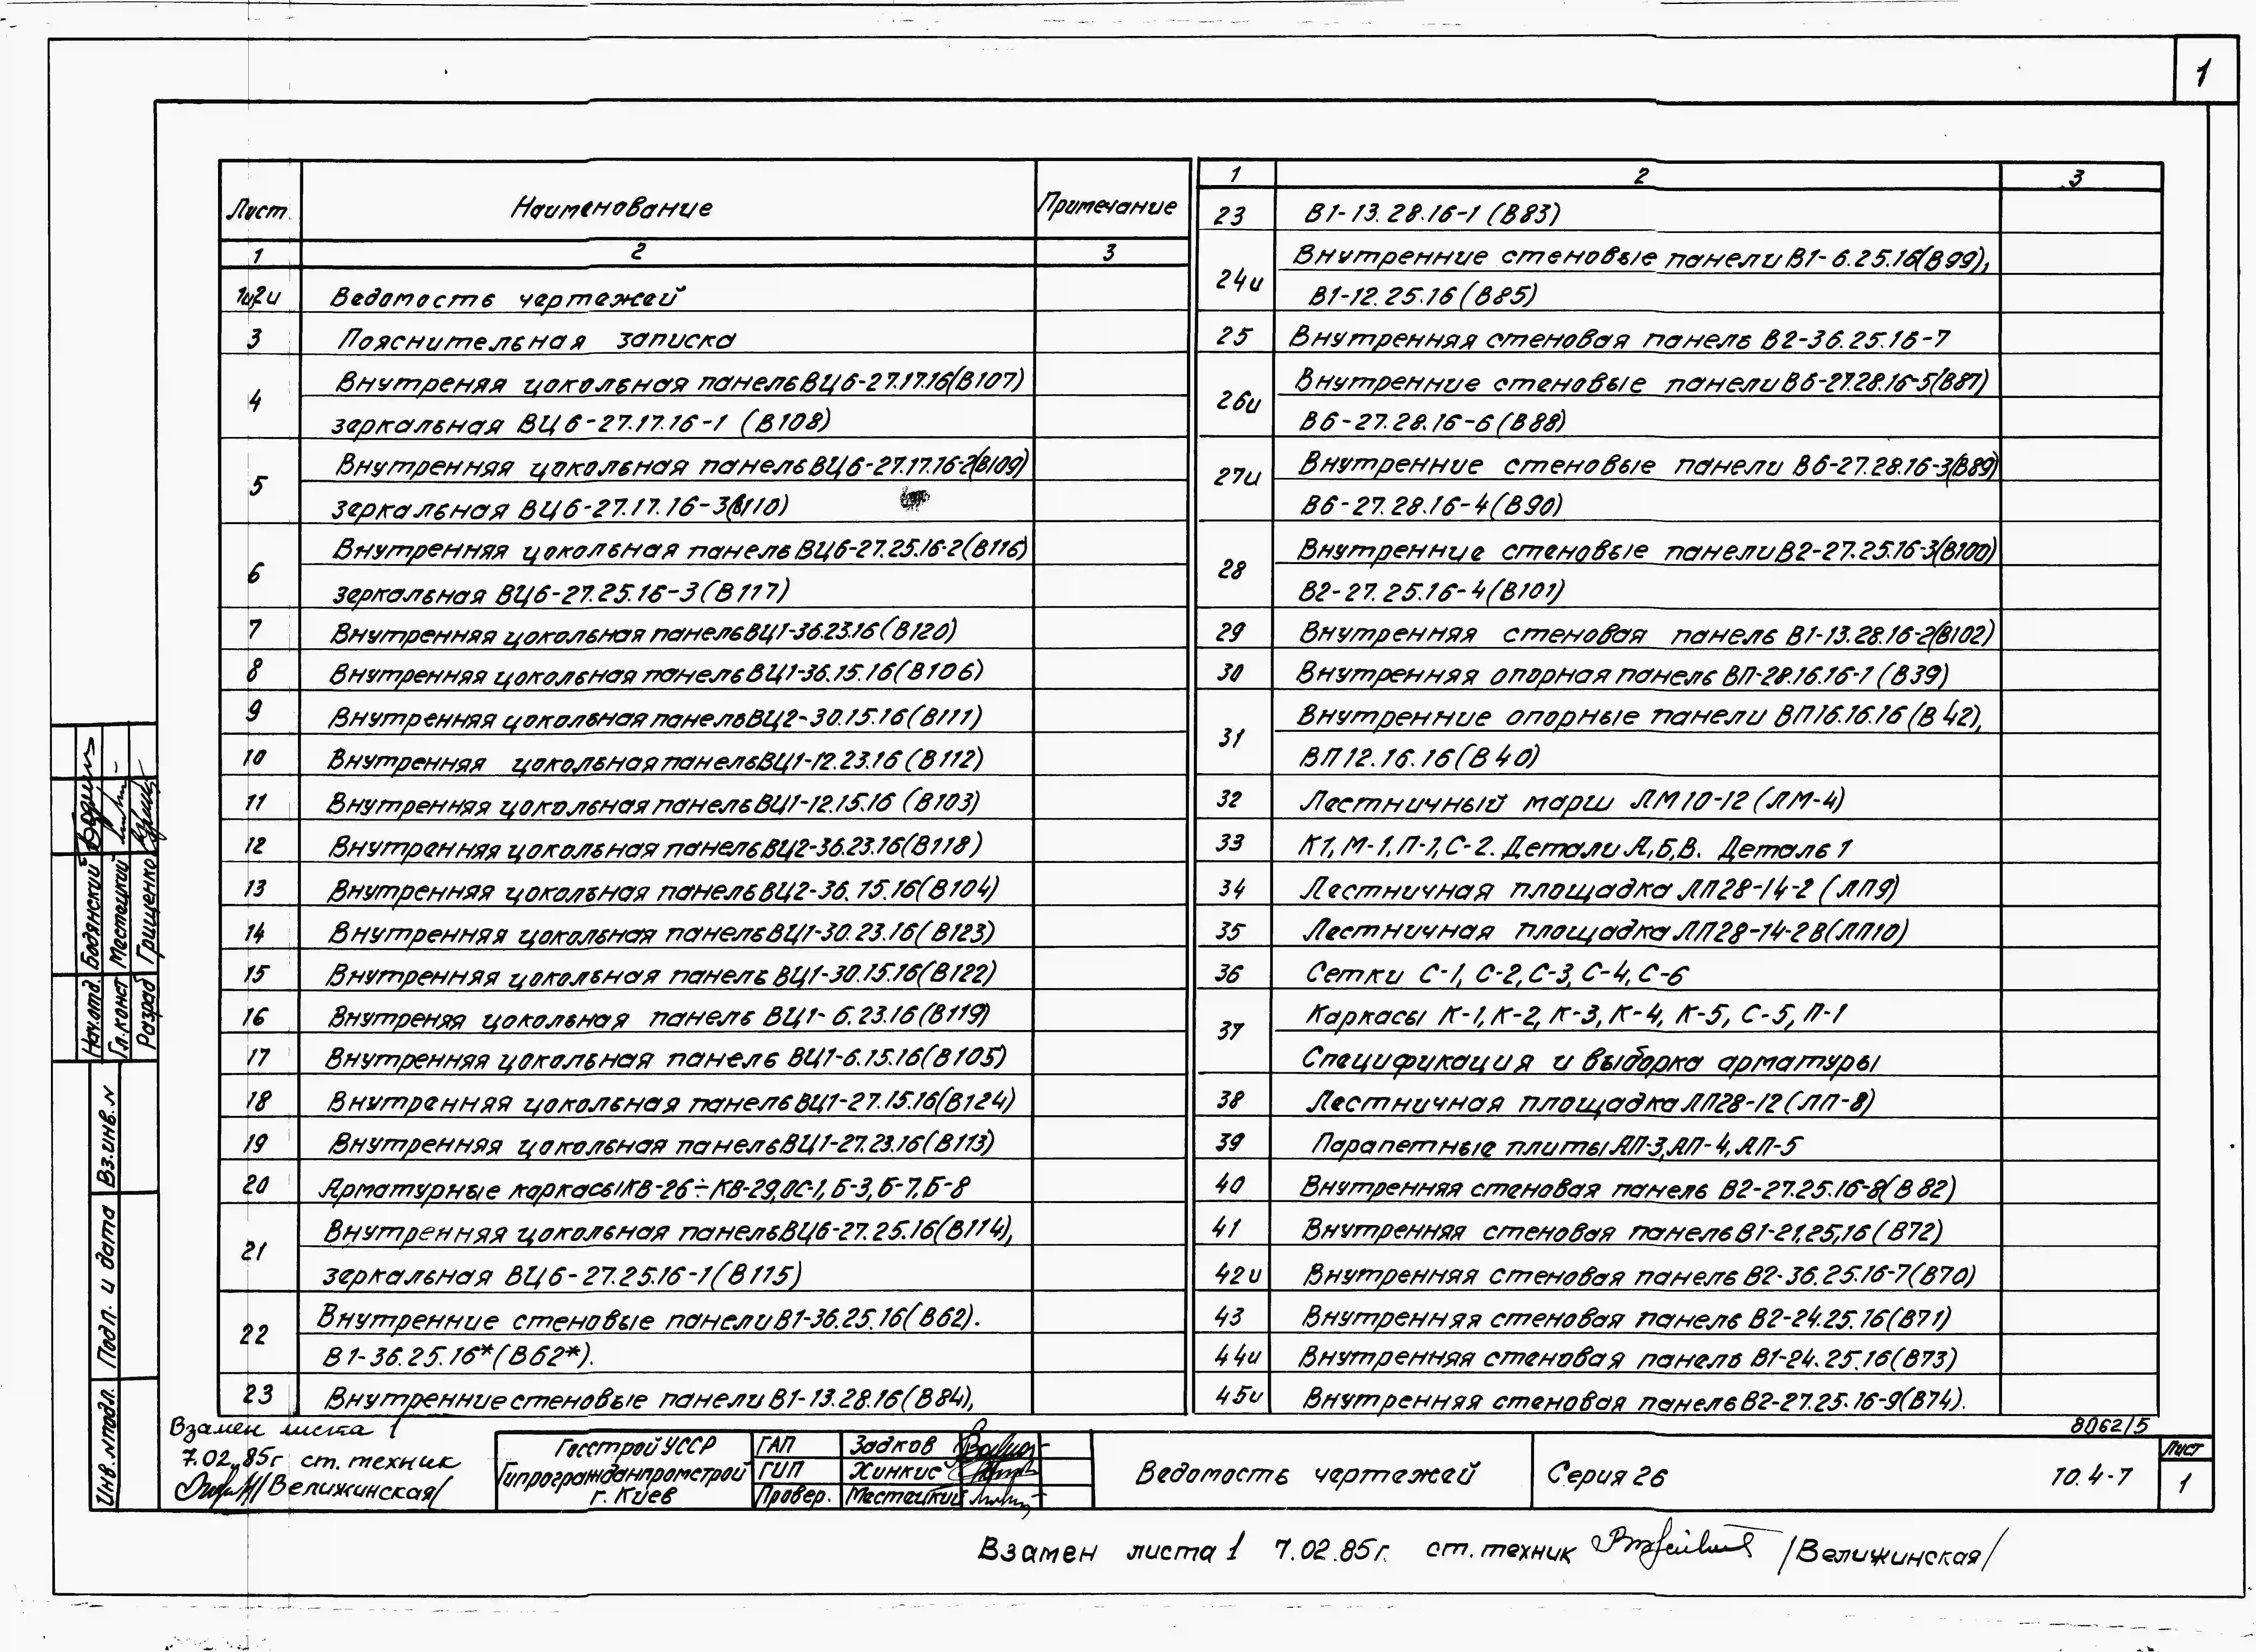 1
Лист Наименование Примечание
1 2 3
1и,2и Ведомость чертежей
3 Пояснительная записка
4 Внутреняя цокольная панель ВЦ6-27.17.16(В107)
зеркальная ВЦ6-27.17.16-1 (В108)
5 Внутренняя цокольная панель ВЦ6-27.17.16-2(В109)
зеркальная ВЦ6-27.17.16-3(В110)
6 Внутренняя цокольная панель ВЦ6-27.25.16-2(В116)
зеркальная ВЦ6-27.25.16-3(В117)
7 Внутренняя цокольная панель ВЦ1-36.23.16(В120)
8 Внутренняя цокольная панель ВЦ1-36.15.16(В106)
9 Внутренняя цокольная панель ВЦ2-30.15.16(В111)
10 Внутренняя цокольная панель ВЦ1-12.23.16(В112)
11 Внутренняя цокольная панель ВЦ1-12.15.16 (В103)
12 Внутренняя цокольная панель ВЦ2-36.23.16(В118)
13 Внутренняя цокольная панель ВЦ2-36.15.16(В104)
14 Внутренняя цокольная панель ВЦ1-30.23.16(В123)
15 Внутренняя цокольная панель ВЦ1-30.15.16(В122)
16 Внутреняя цокольная панель ВЦ1-6.23.16(В119)
17 Внутренняя цокольная панель ВЦ1-6.15.16(В105)
18 Внутренняя цокольная панель ВЦ1-27.15.16(В124)
19 Внутренняя цокольная панель ВЦ1-27.23.16(В113)
20 Арматурные каркасы КВ-26÷КВ-29,ОС-1,Б-3,Б-7,Б-8
21 Внутренняя цокольная панель ВЦ6-27.25.16(В114),
зеркальная ВЦ6-27.25.16-1(В115)
22 Внутренние стеновые панели В1-36.25.16(В62).
В1-36.25.16*(В62*).
23 Внутренние стеновые панели В1-13.28.16(В84),
1 2 3
23 В1-13.28.16-1(В83)
24и Внутренние стеновые панели В1-6.25.16(В99),
В1-12.25.16(В85)
25 Внутренняя стеновая панель В2-36.25.16-7
26и Внутренние стеновые панели В6-27.28.16-5(В87)
В6-27.28.16-6(В88)
27и Внутренние стеновые панели В6-27.28.16-3(В89)
В6-27.28.16-4(В90)
28 Внутренние стеновые панели В2-27.25.16-3(В100)
В2-27.25.16-4(В101)
29 Внутренняя стеновая панель В1-13.28.16-2(В102)
30 Внутренняя опорная панель ВП-28.16.16-1 (В39)
31 Внутренние опорные панели ВП16.16.16(В42),
ВП12.16.16(В40)
32 Лестничный марш ЛМ10-12(ЛМ-4)
33 К1,М-1,П-1,С-2. Детали А,Б,В. Деталь 1
34 Лестничная площадка ЛП28-14-2 (ЛП9)
35 Лестничная площадка ЛП28-14-2В(ЛП10)
36 Сетки С-1, С-2,С-3,С-4,С-6
37 Каркасы К-1,К-2,К-3,К-4, К-5, С-5, П-1
Спецификация и выборка арматуры
38 Лестничная площадка ЛП28-12(ЛП-8)
39 Парапетные плиты АП-3,АП-4,АП-5
40 Внутренняя стеновая панель В2-27.25.16-8(В82)
41 Внутренняя стеновая панель В1-21,25,16(В72)
42и Внутренняя стеновая панель В2-36.25.16-7(В70)
43 Внутренняя стеновая панель В2-24.25.16(В71)
44и Внутренняя стеновая панель В1-24.25.16(В73)
45и Внутренняя стеновая панель В2-27.25.16-9(В74).
8062/5
Нач.отд. Бодянский
Гл.конст Местецкий
Разраб Грищенко
Вз.инв.N
Подп. и дата
Инв.Nподл.
Взамен листа 1
7.02.85г ст.техник
/Велижинская/
Госстрой УССР
Гипрогражданпромстрой
г. Киев
ГАП Задков
ГИП Хинкис
Провер. Местецкий
Ведомость чертежей
Серия 26 10.4-7
Лист
1
Взамен листа 1 7.02.85г. ст.техник /Велижинская/